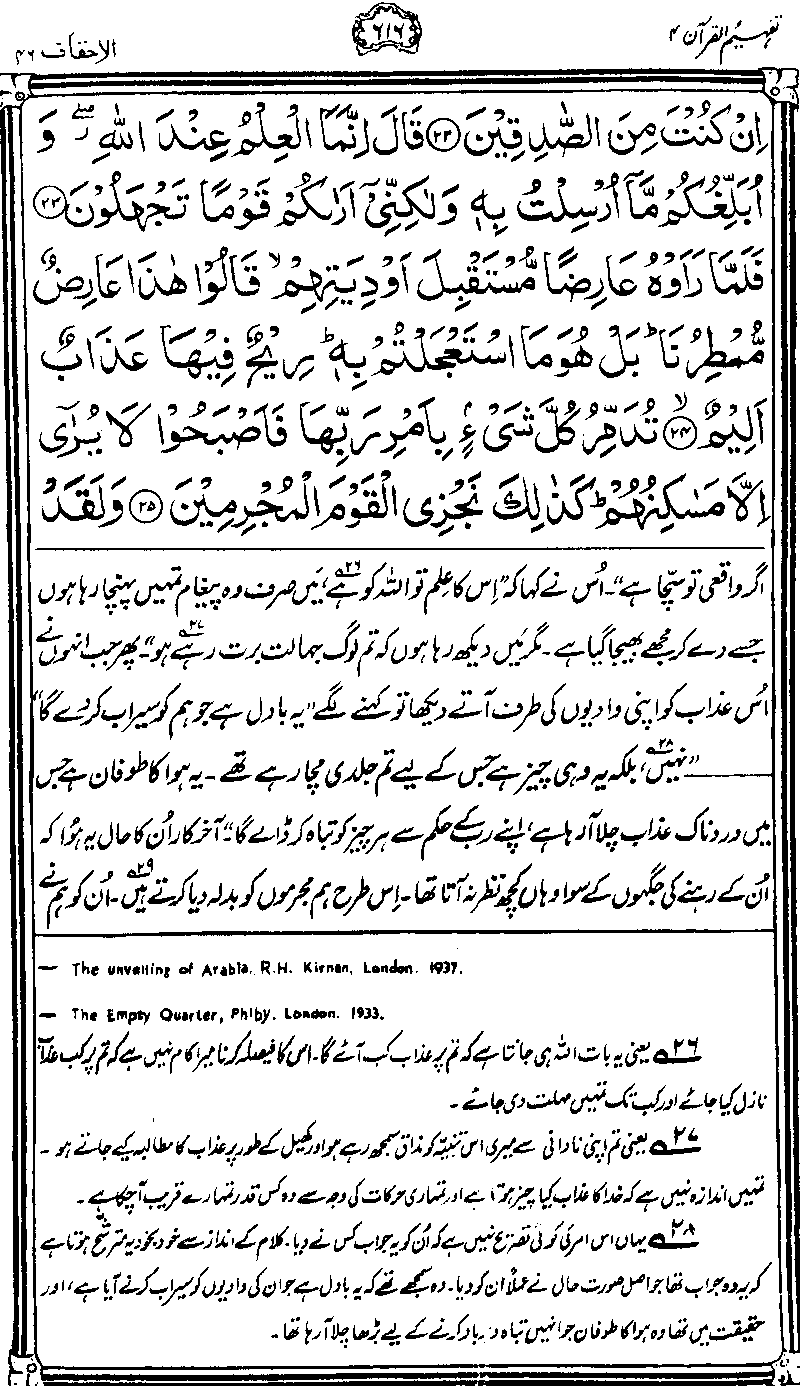 تفہیم القرآن ۴
۶۱۶
الاحقاف ۴۶
اِنْ كُنْتَ مِنَ الصّٰدِقِيْنَ ﴿۲۲﴾ قَالَ اِنَّمَا الْعِلْمُ عِنْدَ اللّٰهِ ۖ وَ
اُبَلِّغُكُمْ مَّآ اُرْسِلْتُ بِهٖ وَلٰكِنِّيْٓ اَرٰىكُمْ قَوْمًا تَجْهَلُوْنَ ﴿۲۳﴾
فَلَمَّا رَاَوْهُ عَارِضًا مُّسْتَقْبِلَ اَوْدِيَتِهِمْ ۙ قَالُوْا هٰذَا عَارِضٌ
مُّمْطِرُنَا ؕ بَلْ هُوَ مَا اسْتَعْجَلْتُمْ بِهٖ ؕ رِيْحٌ فِيْهَا عَذَابٌ
اَلِيْمٌ ﴿۲۴﴾ۙ تُدَمِّرُ كُلَّ شَيْءٍۢ بِاَمْرِ رَبِّهَا فَاَصْبَحُوْا لَا يُرٰٓى
اِلَّا مَسٰكِنُهُمْ ؕ كَذٰلِكَ نَجْزِي الْقَوْمَ الْمُجْرِمِيْنَ ﴿۲۵﴾ وَلَقَدْ
اگر واقعی تو سچّا ہے“۔ اُس نے کہا کہ ”اِس کا علم تو اللہ کو ہے۲۶، مَیں صرف وہ پیغام تمہیں پہنچا رہا ہوں
جسے دے کر مجھے بھیجا گیا ہے۔ مگر مَیں دیکھ رہا ہوں کہ تم لوگ جہالت برت رہے ہو“۲۷۔ پھر جب انہوں نے
اُس عذاب کو اپنی وادیوں کی طرف آتے دیکھا تو کہنے لگے ”یہ بادل ہے جو ہم کو سیراب کر دے گا“
”نہیں۲۸، بلکہ یہ وہی چیز ہے جس کے لیے تم جلدی مچا رہے تھے۔ یہ ہوا کا طوفان ہے جس
میں دردناک عذاب چلا آ رہا ہے، اپنے رب کے حکم سے ہر چیز کو تباہ کر ڈالے گا“۔ آخر کار اُن کا حال یہ ہُوا کہ
اُن کے رہنے کی جگہوں کے سوا وہاں کچھ نظر نہ آتا تھا۔ اِس طرح ہم مجرموں کو بدلہ دیا کرتے ہیں۲۹۔ اُن کو ہم نے
— The unveiling of Arabia. R.H. Kirnan, London. 1937.
— The Empty Quarter, Philby. London. 1933.
۲۶ یعنی یہ بات اللہ ہی جانتا ہے کہ تم پر عذاب کب آئے گا۔ اس کا فیصلہ کرنا میرا کام نہیں ہے کہ تم پر کب عذاب
نازل کیا جائے اور کب تک تمہیں مہلت دی جائے۔
۲۷ یعنی تم اپنی نادانی سے میری اس تنبیہ کو مذاق سمجھ رہے ہو اور کھیل کے طور پر عذاب کا مطالبہ کیے جاتے ہو۔
تمہیں اندازہ نہیں ہے کہ خدا کا عذاب کیا چیز ہوتا ہے اور تمہاری حرکات کی وجہ سے وہ کس قدر تمہارے قریب آ چکا ہے۔
۲۸ یہاں اس امر کی کوئی تصریح نہیں ہے کہ اُن کو یہ جواب کس نے دیا۔ کلام کے انداز سے خود بخود یہ مترشح ہوتا ہے
کہ یہ وہ جواب تھا جو اصل صورت حال نے عملاً ان کو دیا۔ وہ سمجھے تھے کہ یہ بادل ہے جو ان کی وادیوں کو سیراب کرنے آیا ہے، اور
حقیقت میں تھا وہ ہوا کا طوفان جو انہیں تباہ و برباد کرنے کے لیے بڑھا چلا آ رہا تھا۔